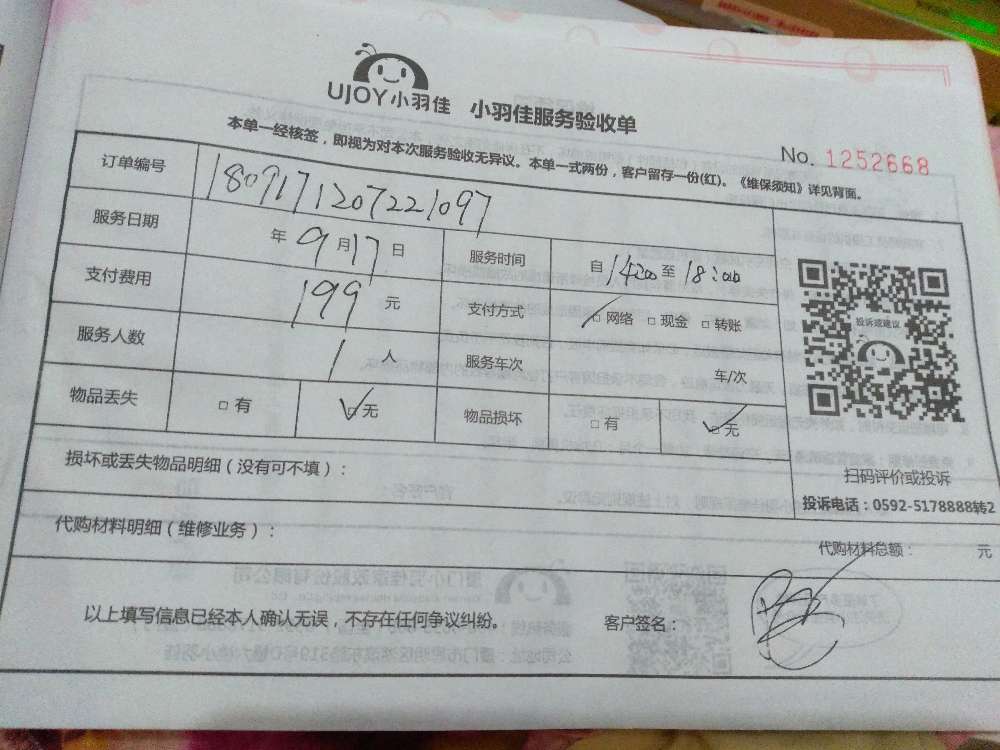 UJOY小羽佳 小羽佳服务验收单
本单一经核签，即视为对本次服务验收无异议。本单一式两份，客户留存一份(红)。《维保须知》详见背面。
No. 1252668
订单编号 1809171207221097
服务日期 年 9月17日 服务时间 自14:00至18:00
支付费用 199 元 支付方式 □网络 □现金 □转账
服务人数 1 人 服务车次 车/次
物品丢失 □有 ☑无 物品损坏 □有 ☑无
投诉或建议
扫码评价或投诉
投诉电话：0592-5178888转2
损坏或丢失物品明细（没有可不填）：
代购材料明细（维修业务）：
代购材料总额： 元
以上填写信息已经本人确认无误，不存在任何争议纠纷。 客户签名：